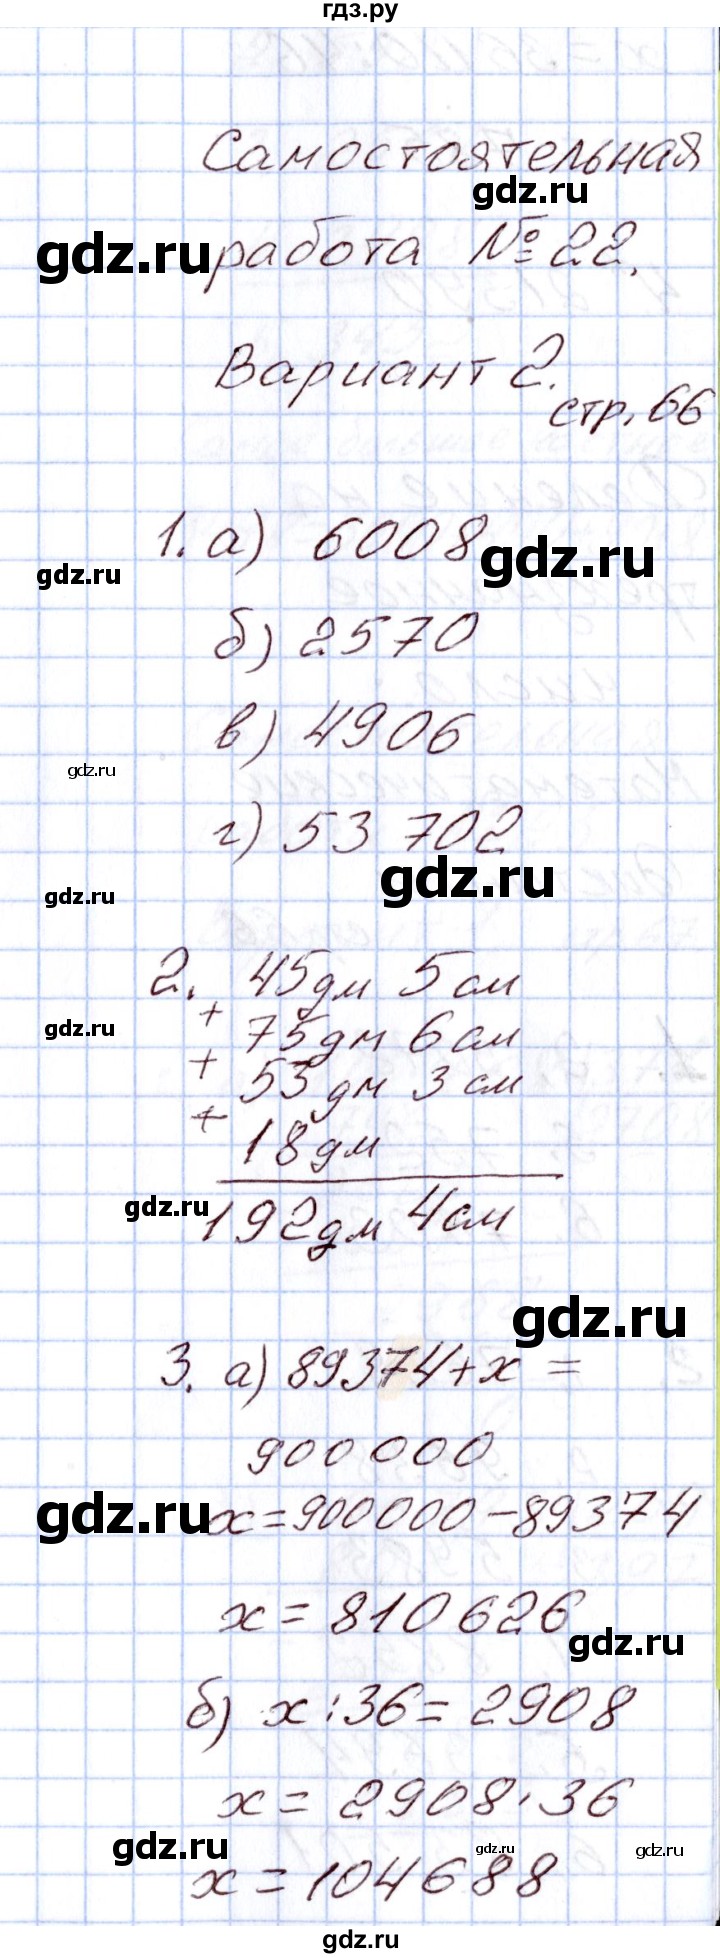 гдз.ру
Самостоятельная
gdz.ru
gdz.ru
работа № 22.
Вариант 2.
стр. 66
1. а) 6008
gdz.ru
gdz.ru
б) 2570
в) 4906
gdz.ru
г) 53 702
gdz.ru
gdz.ru
2. 45дм 5см
+
gdz.ru
75дм 6см
+
53дм 3см
+
18дм
gdz.ru
192дм 4см
gdz.ru
3. а) 89374+х =
900000
gdz.ru
х=900000-89374
х=810626
gdz.ru
б) х:36=2908
х=2908·36
gdz.ru
gdz.ru
gdz.ru
х=104688
gdz.ru